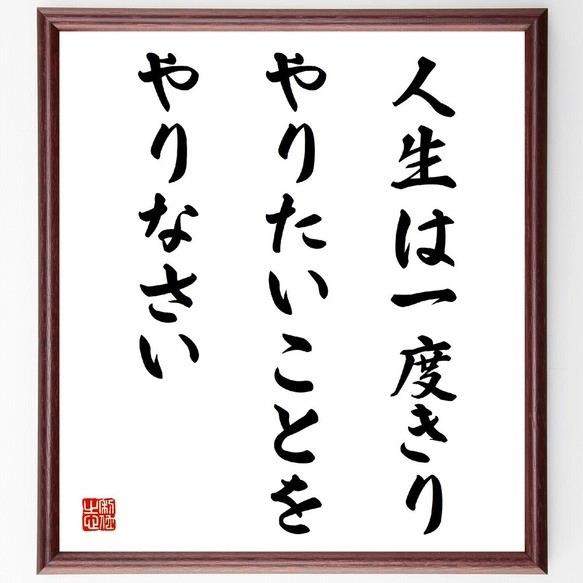 人生は一度きり
やりたいことを
やりなさい